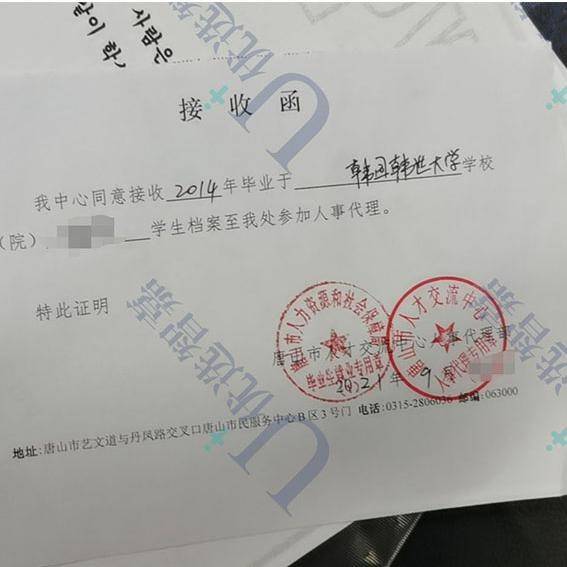 사람은
날이 학
接收函
我中心同意接收 2014 年毕业于 韩国韩世大学 学校
(院) 学生档案至我处参加人事代理。
特此证明
唐山市人力资源和社会保障局
毕业生就业专用章
唐山市人才交流中心
人事代理专用章
唐山市人才交流中心人事代理部
2021年9
地址:唐山市艺文道与丹凤路交叉口唐山市民服务中心B区3号门 电话:0315-2806036 邮编:063000
U优选智嘉